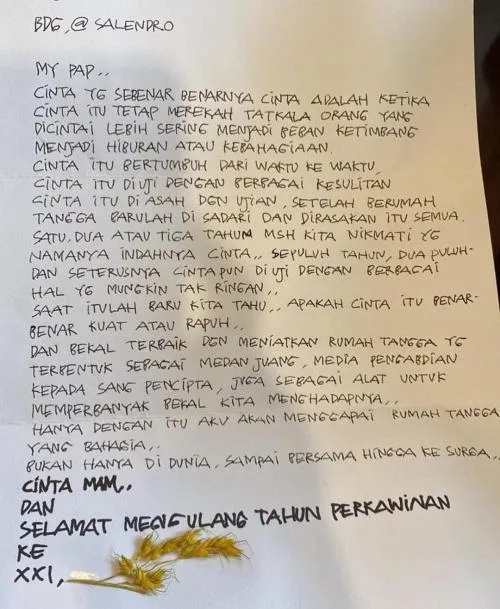 BDG, @ SALENDRO
MY PAP..
CINTA YG SEBENAR BENARNYA CINTA ADALAH KETIKA
CINTA ITU TETAP MEREKAH TATKALA ORANG YANG
DICINTAI LEBIH SERING MENJADI BEBAN KETIMBANG
MENJADI HIBURAN ATAU KEBAHAGIAAN.
CINTA ITU BERTUMBUH DARI WAKTU KE WAKTU,
CINTA ITU DIUJI DENGAN BERBAGAI KESULITAN
CINTA ITU DI ASAH DGN UJIAN, SETELAH BERUMAH
TANGGA BARULAH DI SADARI DAN DIRASAKAN ITU SEMUA.
SATU, DUA ATAU TIGA TAHUN MSH KITA NIKMATI YG
NAMANYA INDAHNYA CINTA.. SEPULUH TAHUN, DUA PULUH-
DAN SETERUSNYA CINTAPUN DI UJI DENGAN BERBAGAI
HAL YG MUNGKIN TAK RINGAN..
SAAT ITULAH BARU KITA TAHU.. APAKAH CINTA ITU BENAR-
BENAR KUAT ATAU RAPUH..
DAN BEKAL TERBAIK DGN MENIATKAN RUMAH TANGGA YG
TERBENTUK SEBAGAI MEDAN JUANG, MEDIA PENGABDIAN
KEPADA SANG PENCIPTA, JUGA SEBAGAI ALAT UNTUK
MEMPERBANYAK BEKAL KITA MENGHADAPNYA..
HANYA DENGAN ITU AKU AKAN MENGGAPAI RUMAH TANGGA
YANG BAHAGIA..
BUKAN HANYA DI DUNIA, SAMPAI BERSAMA HINGGA KE SURGA..
CINTA MAM..
DAN
SELAMAT MENGULANG TAHUN PERKAWINAN
KE
XXI,